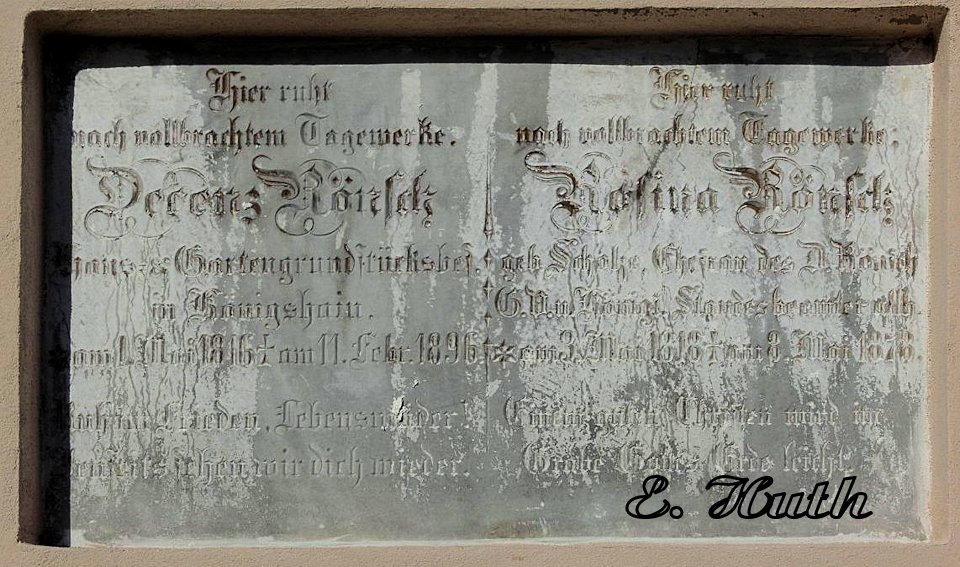 Hier ruht
nach vollbrachtem Tagewerke.
Decenz Rönsch
Haus- & Gartengrundstücksbes.
in Königshain.
am 1. Mai 1816 † am 11. Febr. 1896
Frieden, Lebensmüder!
sehen wir dich wieder.
Hier ruht
nach vollbrachtem Tagewerke.
Rosina Rönsch
geb. Scholze, Ehefrau des D. Rönsch
G. B. u. Königl. Standesbeamter allh.
* am 3. Mai 1818 † am 8. Mai 1878.
Einem guten Christen wird im
Grabe Gottes Erde leicht.
E. Huth